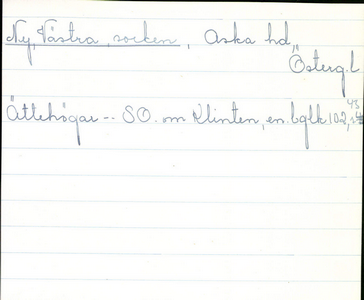 Ny, Västra, socken, Aska hd,
Österg.l
Ättehögar -- SO. om Klinten, en. bglk 102,
43